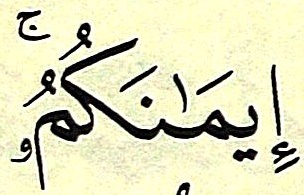 إِيمَٰنَكُمُۥۚ